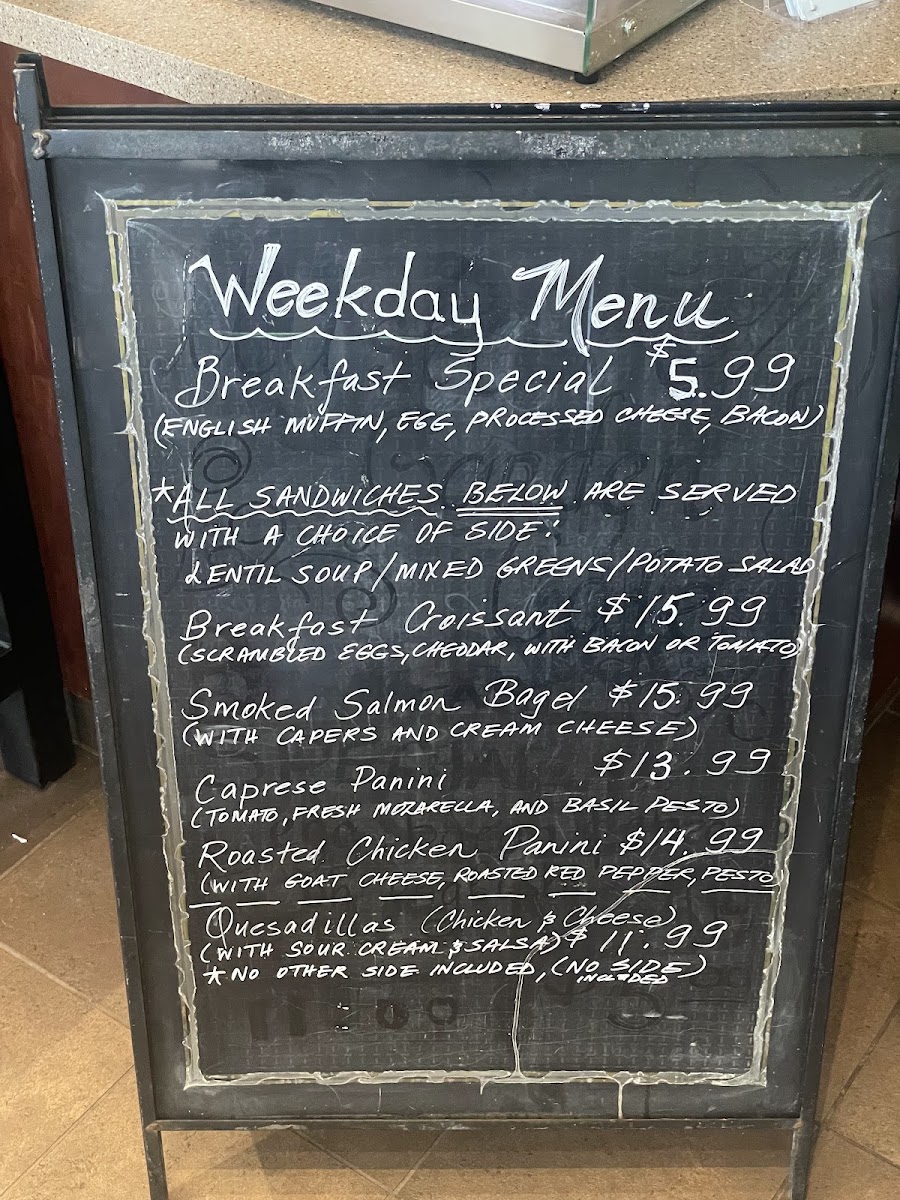 Weekday Menu
Breakfast Special $5.99
(ENGLISH MUFFIN, EGG, PROCESSED CHEESE, BACON)
*ALL SANDWICHES BELOW ARE SERVED
WITH A CHOICE OF SIDE:
LENTIL SOUP/MIXED GREENS/POTATO SALAD
Breakfast Croissant $15.99
(SCRAMBLED EGGS, CHEDDAR, WITH BACON OR TOMATO)
Smoked Salmon Bagel $15.99
(WITH CAPERS AND CREAM CHEESE)
Caprese Panini $13.99
(TOMATO, FRESH MOZARELLA, AND BASIL PESTO)
Roasted Chicken Panini $14.99
(WITH GOAT CHEESE, ROASTED RED PEPPER, PESTO)
Quesadillas (Chicken & Cheese)
(WITH SOUR CREAM & SALSA) $11.99
*NO OTHER SIDE INCLUDED, (NO SIDE INCLUDED)